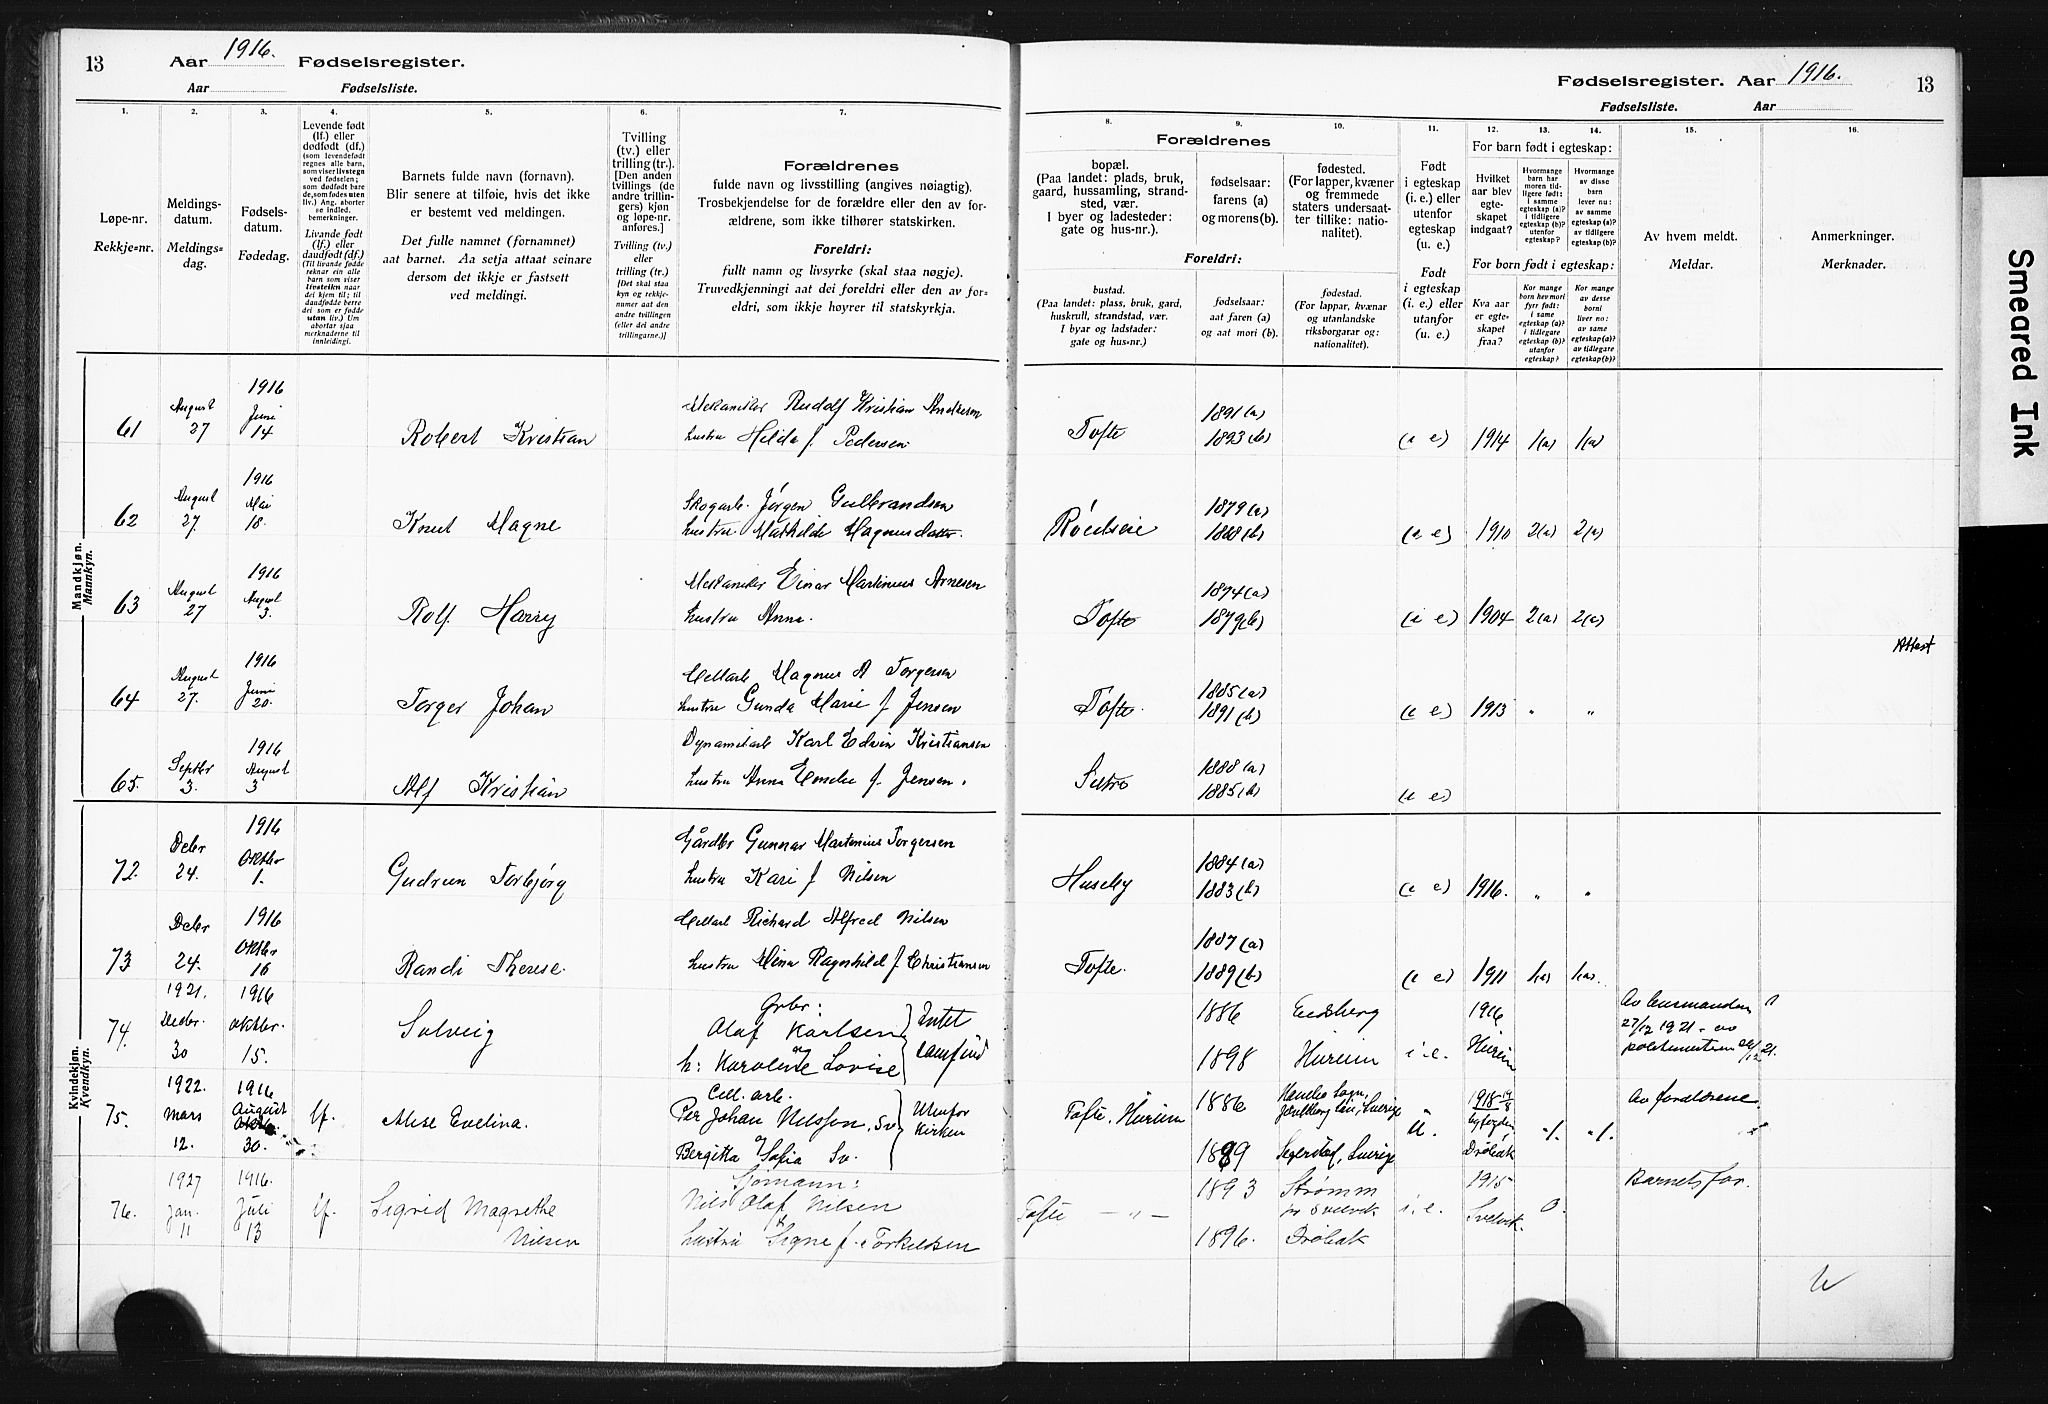 13 Aar 1916. Fødselsregister.
Aar Fødselsliste.
1. 2. 3. 4. 5. 6. 7.
Løpe-nr.
Rekkje=nr.
Meldings-
datum.
Meldings=
dag.
Fødsels-
datum.
Fødedag.
Levende født
(lf.) eller
dødfødt (df.)
(som levendefødt
regnes alle barn,
som viser livstegn
ved fødselen;
som dødfødt bare
de, som fødes uten
liv.) Ang. aborter
se indled.
bemerkninger.
Livande født
(lf.) eller
daudfødt (df.)
(Til livande fødde
reknar ein alle
barn som viser
livsteikn naar
dei kjem til; til
daudfødde berre
dei som er fødde
utan liv.) Um
abortar sjaa
merknaderne til
innleidingi.
Barnets fulde navn (fornavn).
Blir senere at tilføie, hvis det ikke
er bestemt ved meldingen.
Det fulle namnet (fornamnet)
aat barnet. Aa setja attaat seinare
dersom det ikkje er fastsett
ved meldingi.
Tvilling
(tv.) eller
trilling (tr.).
[Den anden
tvillings (de
andre trillin-
gers) kjøn
og løpe-nr.
anføres.]
Tvilling (tv.)
eller
trilling (tr.)
[Det skal staa
kyn og rekkje-
numer aat den
andre tvillingen
(eller dei andre
trillingarne.)]
Forældrenes
fulde navn og livsstilling (angives nøiagtig).
Trosbekjendelse for de forældre eller den av for-
ældrene, som ikke tilhører statskirken.
Foreldri:
fullt namn og livsyrke (skal staa nøgje).
Truvedkjenningi aat dei foreldri eller den av for=
eldri, som ikkje høyrer til statskyrkja.
Mandkjøn.
Mannkyn.
61 August 27 1916 Juni 14 Robert Kristian Mekaniker Rudolf Kristian Andersen
hustru Hilda f. Pedersen
62 August 27. 1916 Mai 18. Knut Magne Skogarb. Jørgen Gulbrandsen
hustru Mathilde Magnusdatter.
63 August 27 1916 August 3. Rolf Harry Mekaniker Einar Martinius Arnesen
hustru Anna.
64 August 27. 1916 Juni 20. Torger Johan Cellarb Magnus A Torgersen
hustru Gunda Marie f Jensen
65. Septbr 3. 1916 August 3 Alf Kristian Dynamitarb Karl Edvin Kristiansen
hustru Anna Emelie f. Jensen.
Kvindekjøn.
Kvendkyn.
72. Debr 24. 1916 Oktbr 1. Gudrun Torbjørg Gårdbr Gunnar Martinius Torgersen
hustru Kari f Nilsen
73 Debr 24. 1916 Oktbr 16 Randi Therese. Cellarb Richard Alfred Nilsen
hustru Mina Ragnhild f Christiansen
74. 1921. Decbr. 30 1916 Oktbr. 15. Solveig Grbr:
Olaf Karlsen
h: Karoline Lovise
75. 1922. Mars 12. 1916 August 30. lf. Alise Evelina. Cell. arb.
Per Johan Nilsson, Sv. Utenfor
kirken
Bergitta Sofia Sv.
76. 1927 Jan. 11 1916. Juli 13 lf. Sigrid Magrethe
Nilsen Sjømann:
Nils Olaf Nilsen
hustru Signe f. Torkildsen
Fødselsregister. Aar 1916. 13
Fødselsliste. Aar
8. 9. 10. 11. 12. 13. 14. 15. 16.
Forældrenes
bopæl.
(Paa landet: plads, bruk,
gaard, hussamling, strand-
sted, vær.
I byer og ladesteder:
gate og hus-nr.).
fødselsaar:
farens (a)
og morens(b).
fødested.
(For lapper, kvæner
og fremmede
staters undersaat-
ter tillike: natio-
nalitet).
Foreldri:
bustad.
(Paa landet: plass, bruk, gard,
huskrull, strandstad, vær.
I byar og ladstader:
gate og hus=nr.)
fødselsaar:
aat faren (a)
og aat mori (b).
fødestad.
(For lappar, kvænar
og utanlandske
riksborgarar og:
nationalitet).
Født
i egteskap
(i. e.) eller
utenfor
egteskap
(u. e.)
Født
i egteskap
(i. e.) eller
utanfor
egteskap
(u. e.)
For barn født i egteskap:
Hvilket
aar blev
egte-
skapet
indgaat?
Hvormange
barn har
moren tid-
ligere født:
i samme
egteskap (a)?
i tidligere
egteskap (b)?
utenfor
egteskap?
Hvormange
av disse
barn
lever nu:
av samme
egteskap (a)?
av tidligere
egteskap (b)?
For born født i egteskap:
Kva aar
er egte-
skapet
fraa?
Kor mange
born hev mori
fyrr født:
i same
egteskap (a)?
i tidlegare
egteskap (b)?
utanfor
egteskap?
Kor mange
av desse
borni
liver no:
av same
egteskap (a)?
av tidlegare
egteskap (b)?
Av hvem meldt.
Meldar.
Anmerkninger.
Merknader.
Tofte 1891 (a)
1893 (b) (i e) 1914 1(a) 1(a)
Rødseie 1879 (a)
1868 (b) (i e) 1910 2(a) 2(a)
Tofte 1874 (a)
1879 (b) (i e) 1904 2(a) 2(a)
Attest
Tofte. 1885 (a)
1891 (b) (i e) 1913 " "
Sætre 1888 (a)
1885 (b) (i e)
Huseby 1884 (a)
1883 (b) (i e) 1916. " "
Tofte. 1887 (a)
1889 (b) (i e) 1911 1(a) 1(a).
1886 Eidsberg 1916
27/12 1921 - av
1898 Hurum i. e. Hurum
Tofte, Hurum 1886 1918 Av forældrene.
1889 Segerstad, Sverige Drøbak
Tofte — " — 1893 Strømm
pr Svelvik i. e. 1915
Svelvik 0. Barnets far.
1896. Drøbak
Smeared Ink